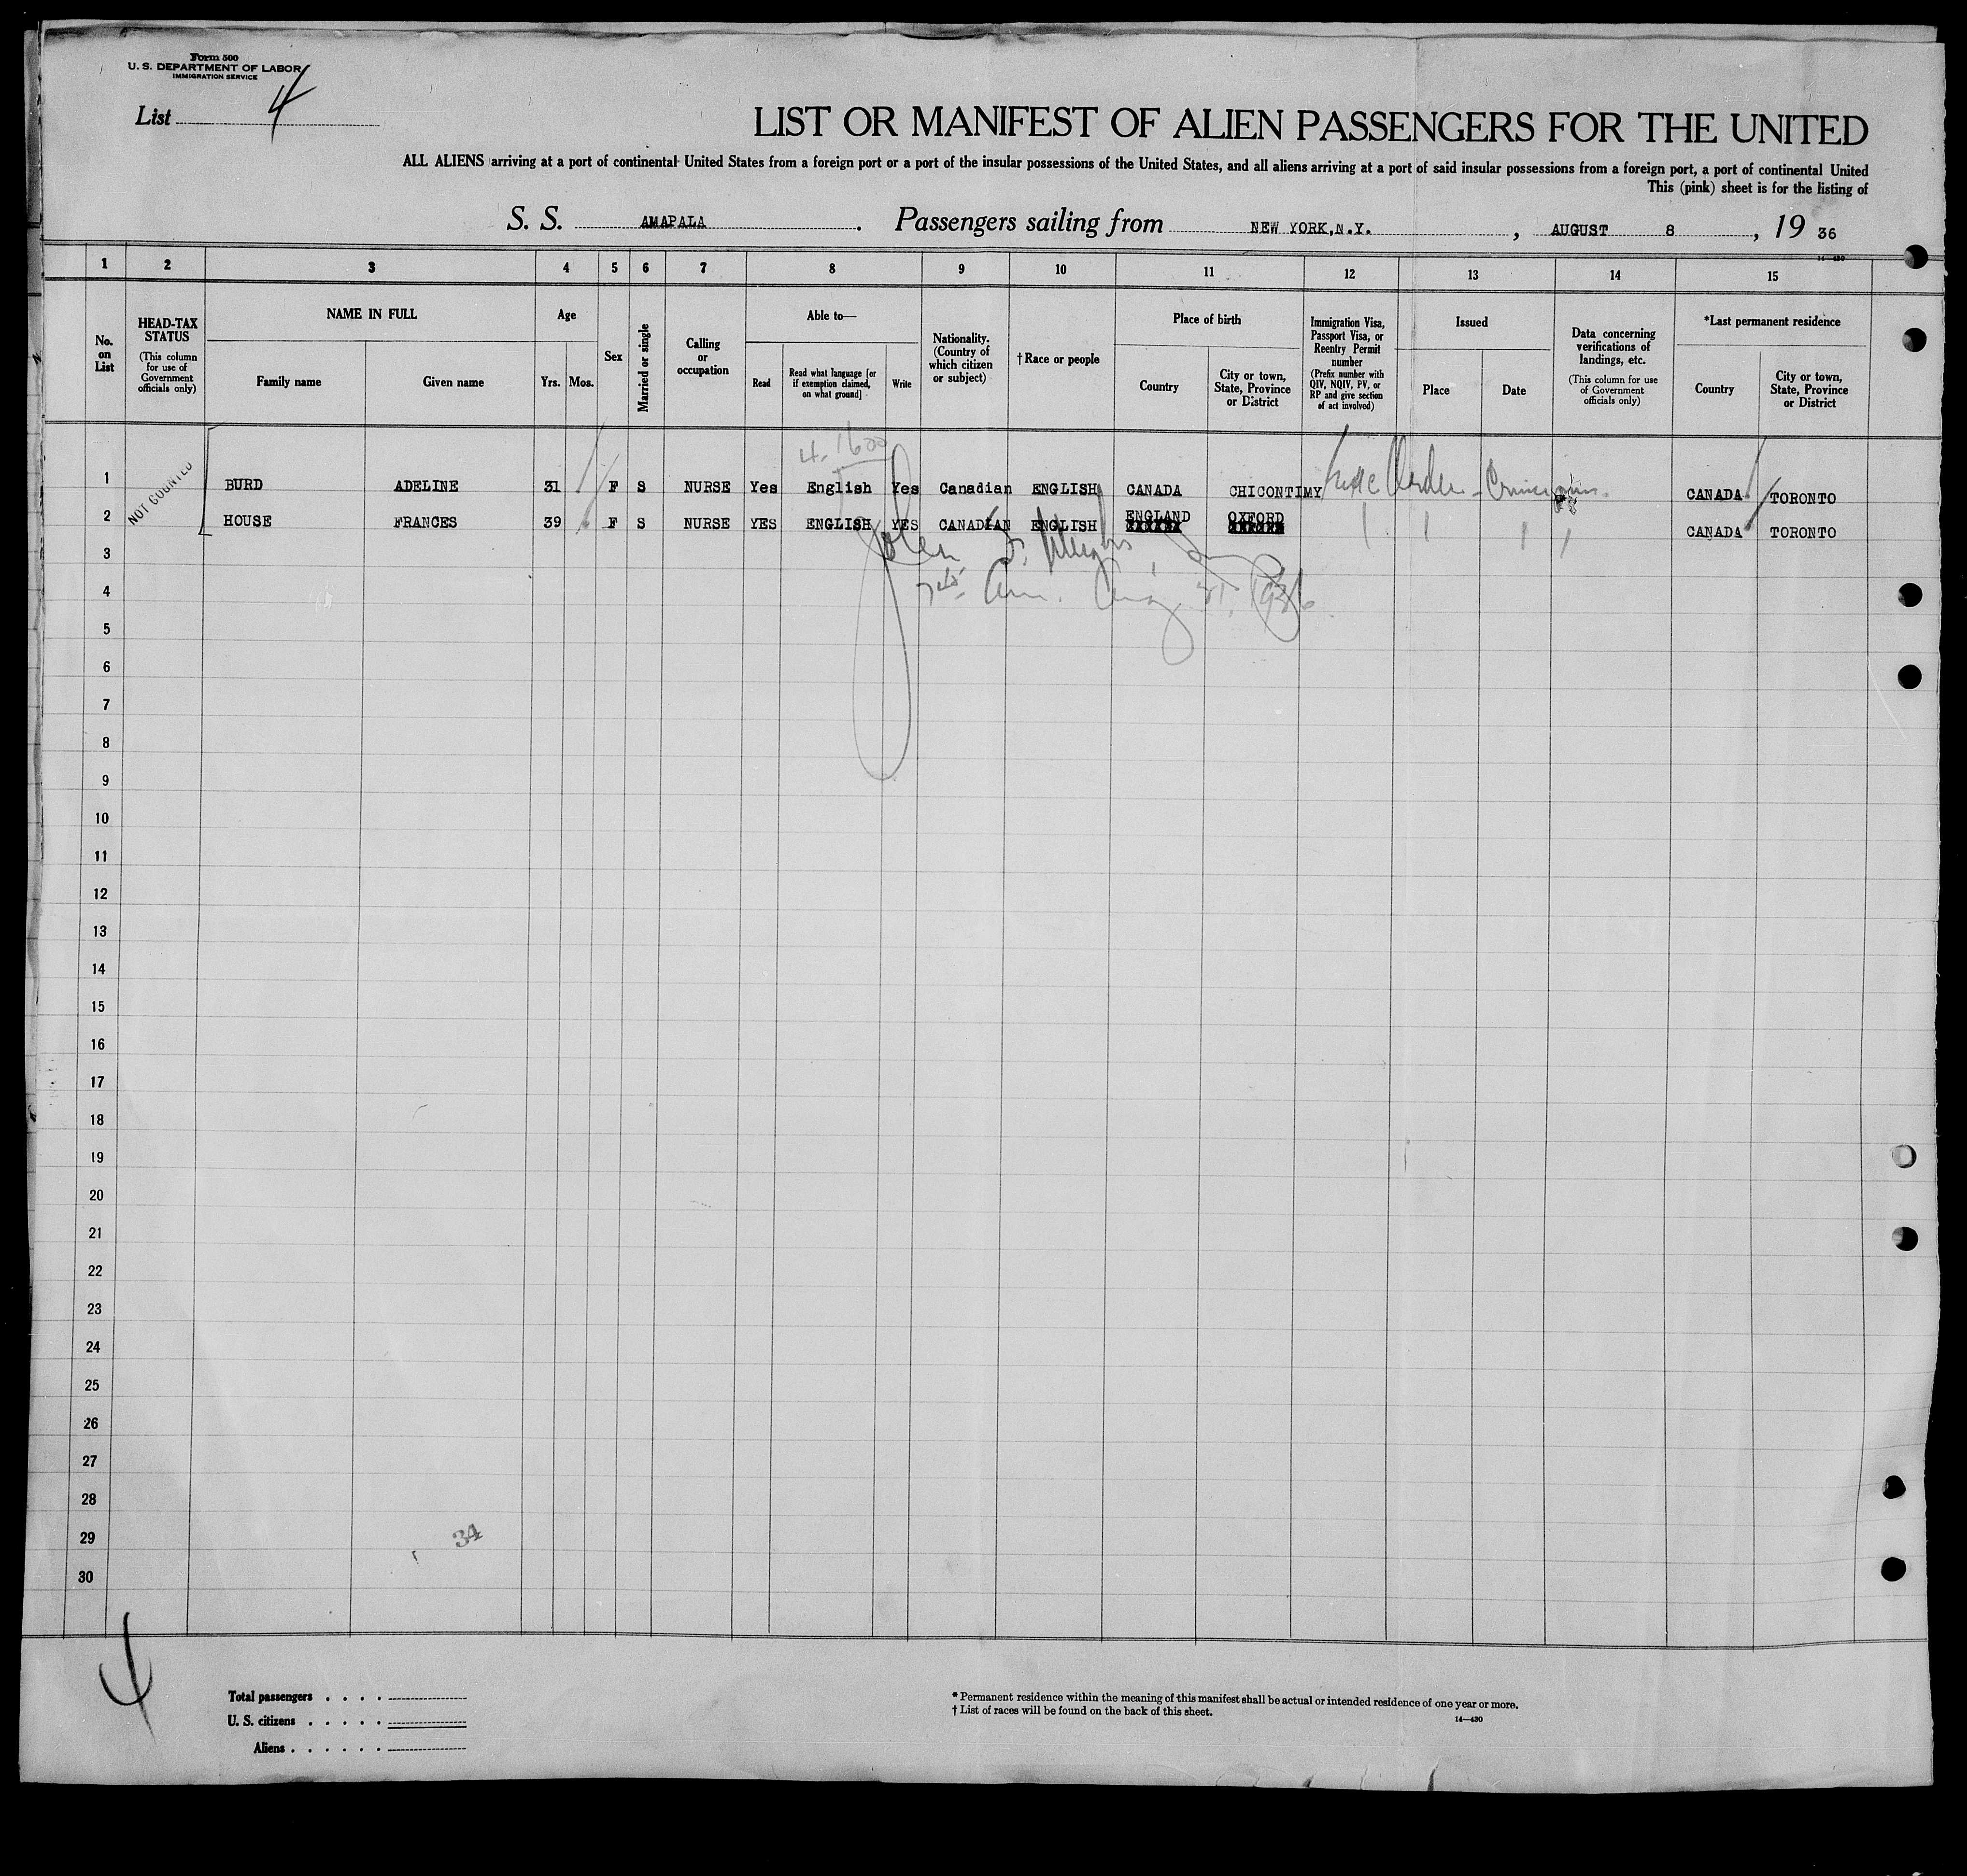 Form 500
U. S. DEPARTMENT OF LABOR
IMMIGRATION SERVICE
List 4
LIST OR MANIFEST OF ALIEN PASSENGERS FOR THE UNITED
ALL ALIENS arriving at a port of continental United States from a foreign port or a port of the insular possessions of the United States, and all aliens arriving at a port of said insular possessions from a foreign port, a port of continental United
This (pink) sheet is for the listing of
S. S. AMAPALA. Passengers sailing from NEW YORK, N.Y., AUGUST 8, 19 36
14—430
1 2 3 4 5 6 7 8 9 10 11 12 13 14 15
No. on List
HEAD-TAX STATUS
(This column for use of Government officials only)
NAME IN FULL
Family name
Given name
Age
Yrs.
Mos.
Sex
Married or single
Calling or occupation
Able to—
Read
Read what language [or if exemption claimed, on what ground]
Write
Nationality. (Country of which citizen or subject)
†Race or people
Place of birth
Country
City or town, State, Province or District
Immigration Visa, Passport Visa, or Reentry Permit number
(Prefix number with QIV, NQIV, PV, or RP and give section of act involved)
Issued
Place
Date
Data concerning verifications of landings, etc.
(This column for use of Government officials only)
*Last permanent residence
Country
City or town, State, Province or District
NOT COUNTED
1 BURD ADELINE 31 F S NURSE Yes English Yes Canadian ENGLISH CANADA CHICONTIMY CANADA TORONTO
2 HOUSE FRANCES 39 F S NURSE YES ENGLISH YES CANADIAN ENGLISH ENGLAND OXFORD CANADA TORONTO
3
John
4
Aug 31, 1936
5
6
7
8
9
10
11
12
13
14
15
16
17
18
19
20
21
22
23
24
25
26
27
28
29
34
30
4
Total passengers . . . .
U. S. citizens . . . . .
Aliens . . . . . .
* Permanent residence within the meaning of this manifest shall be actual or intended residence of one year or more.
† List of races will be found on the back of this sheet.
14—430